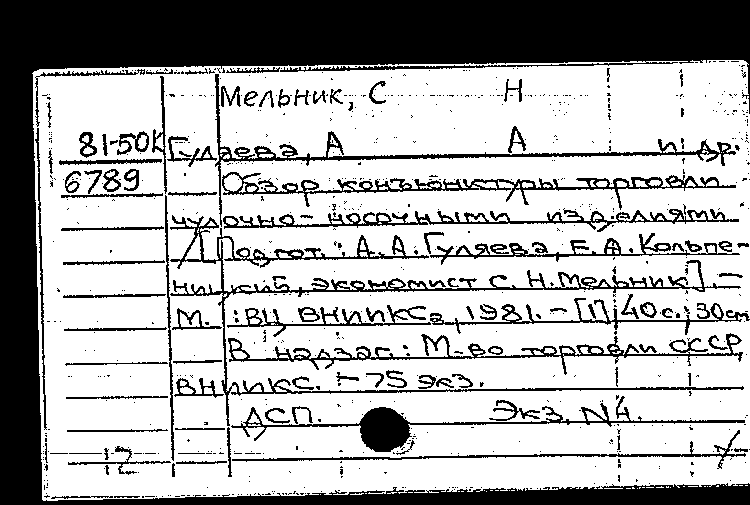 Мельник, С Н
81-50К Гуляева, А А и др.
6789 Обзор конъюнктуры торговли
чулочно-носочными изделиями
/[Подгот.: А.А.Гуляева, Е.А.Колпе-
ницкий, экономист С.Н.Мельник].—
М.:ВЦ ВНИИКСа, 1981.-[1], 40с.; 30см
В надзаг.: М-во торговли СССР,
ВНИИКС. - 75 экз.
ДСП. Экз. N4.
12